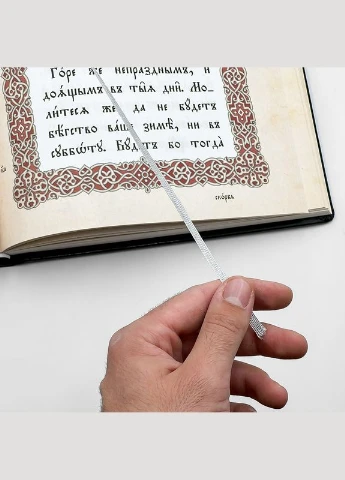 Го́ре же непра́зднымъ, и
доѧ́щымъ въ ты̑ѧ дни̑. Мо_
ли́тесѧ же да не бу́детъ
бѣ́гство ва́ше зимѣ̀, ни въ
суббѡ́ту. Бу́детъ бо тогда
ско́рбь